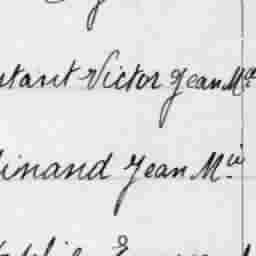 stant Victor Jean M.ie
dinand Jean M.ie